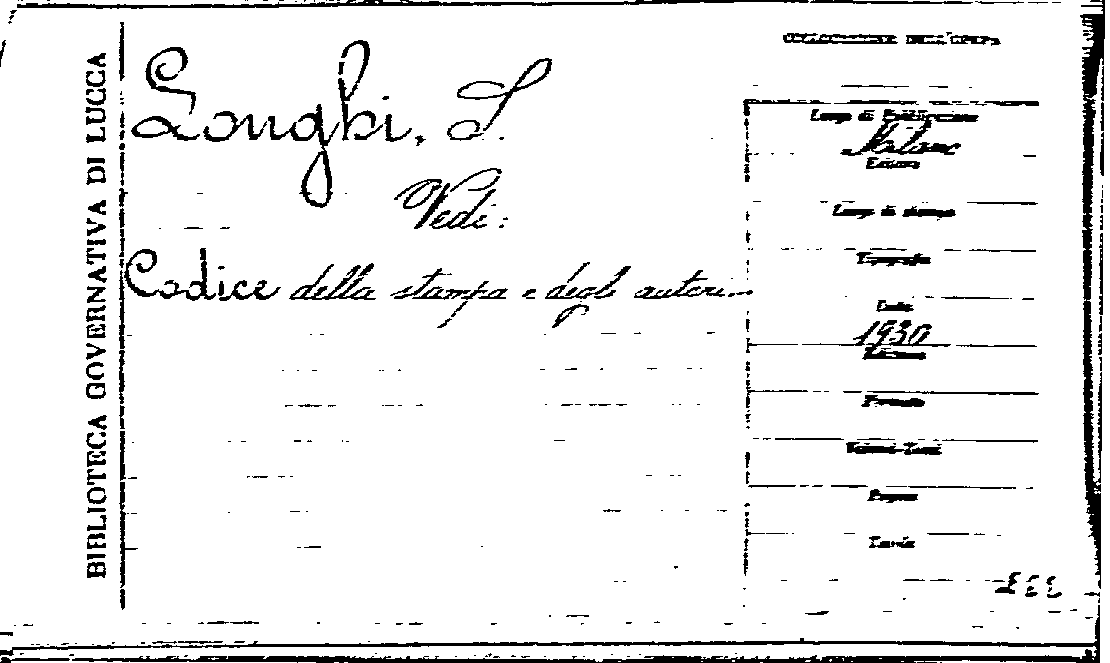 BIBLIOTECA GOVERNATIVA DI LUCCA
Longhi, S.
Vedi:
Codice della stampa e degli autori.
COLLOCAZIONE DELL'OPERA
Luogo di Pubblicazione
Milano
Editore
Luogo di stampa
Tipografia
Data
1930
Edizione
Formato
Volumi-Tomi
Pagine
Tavole